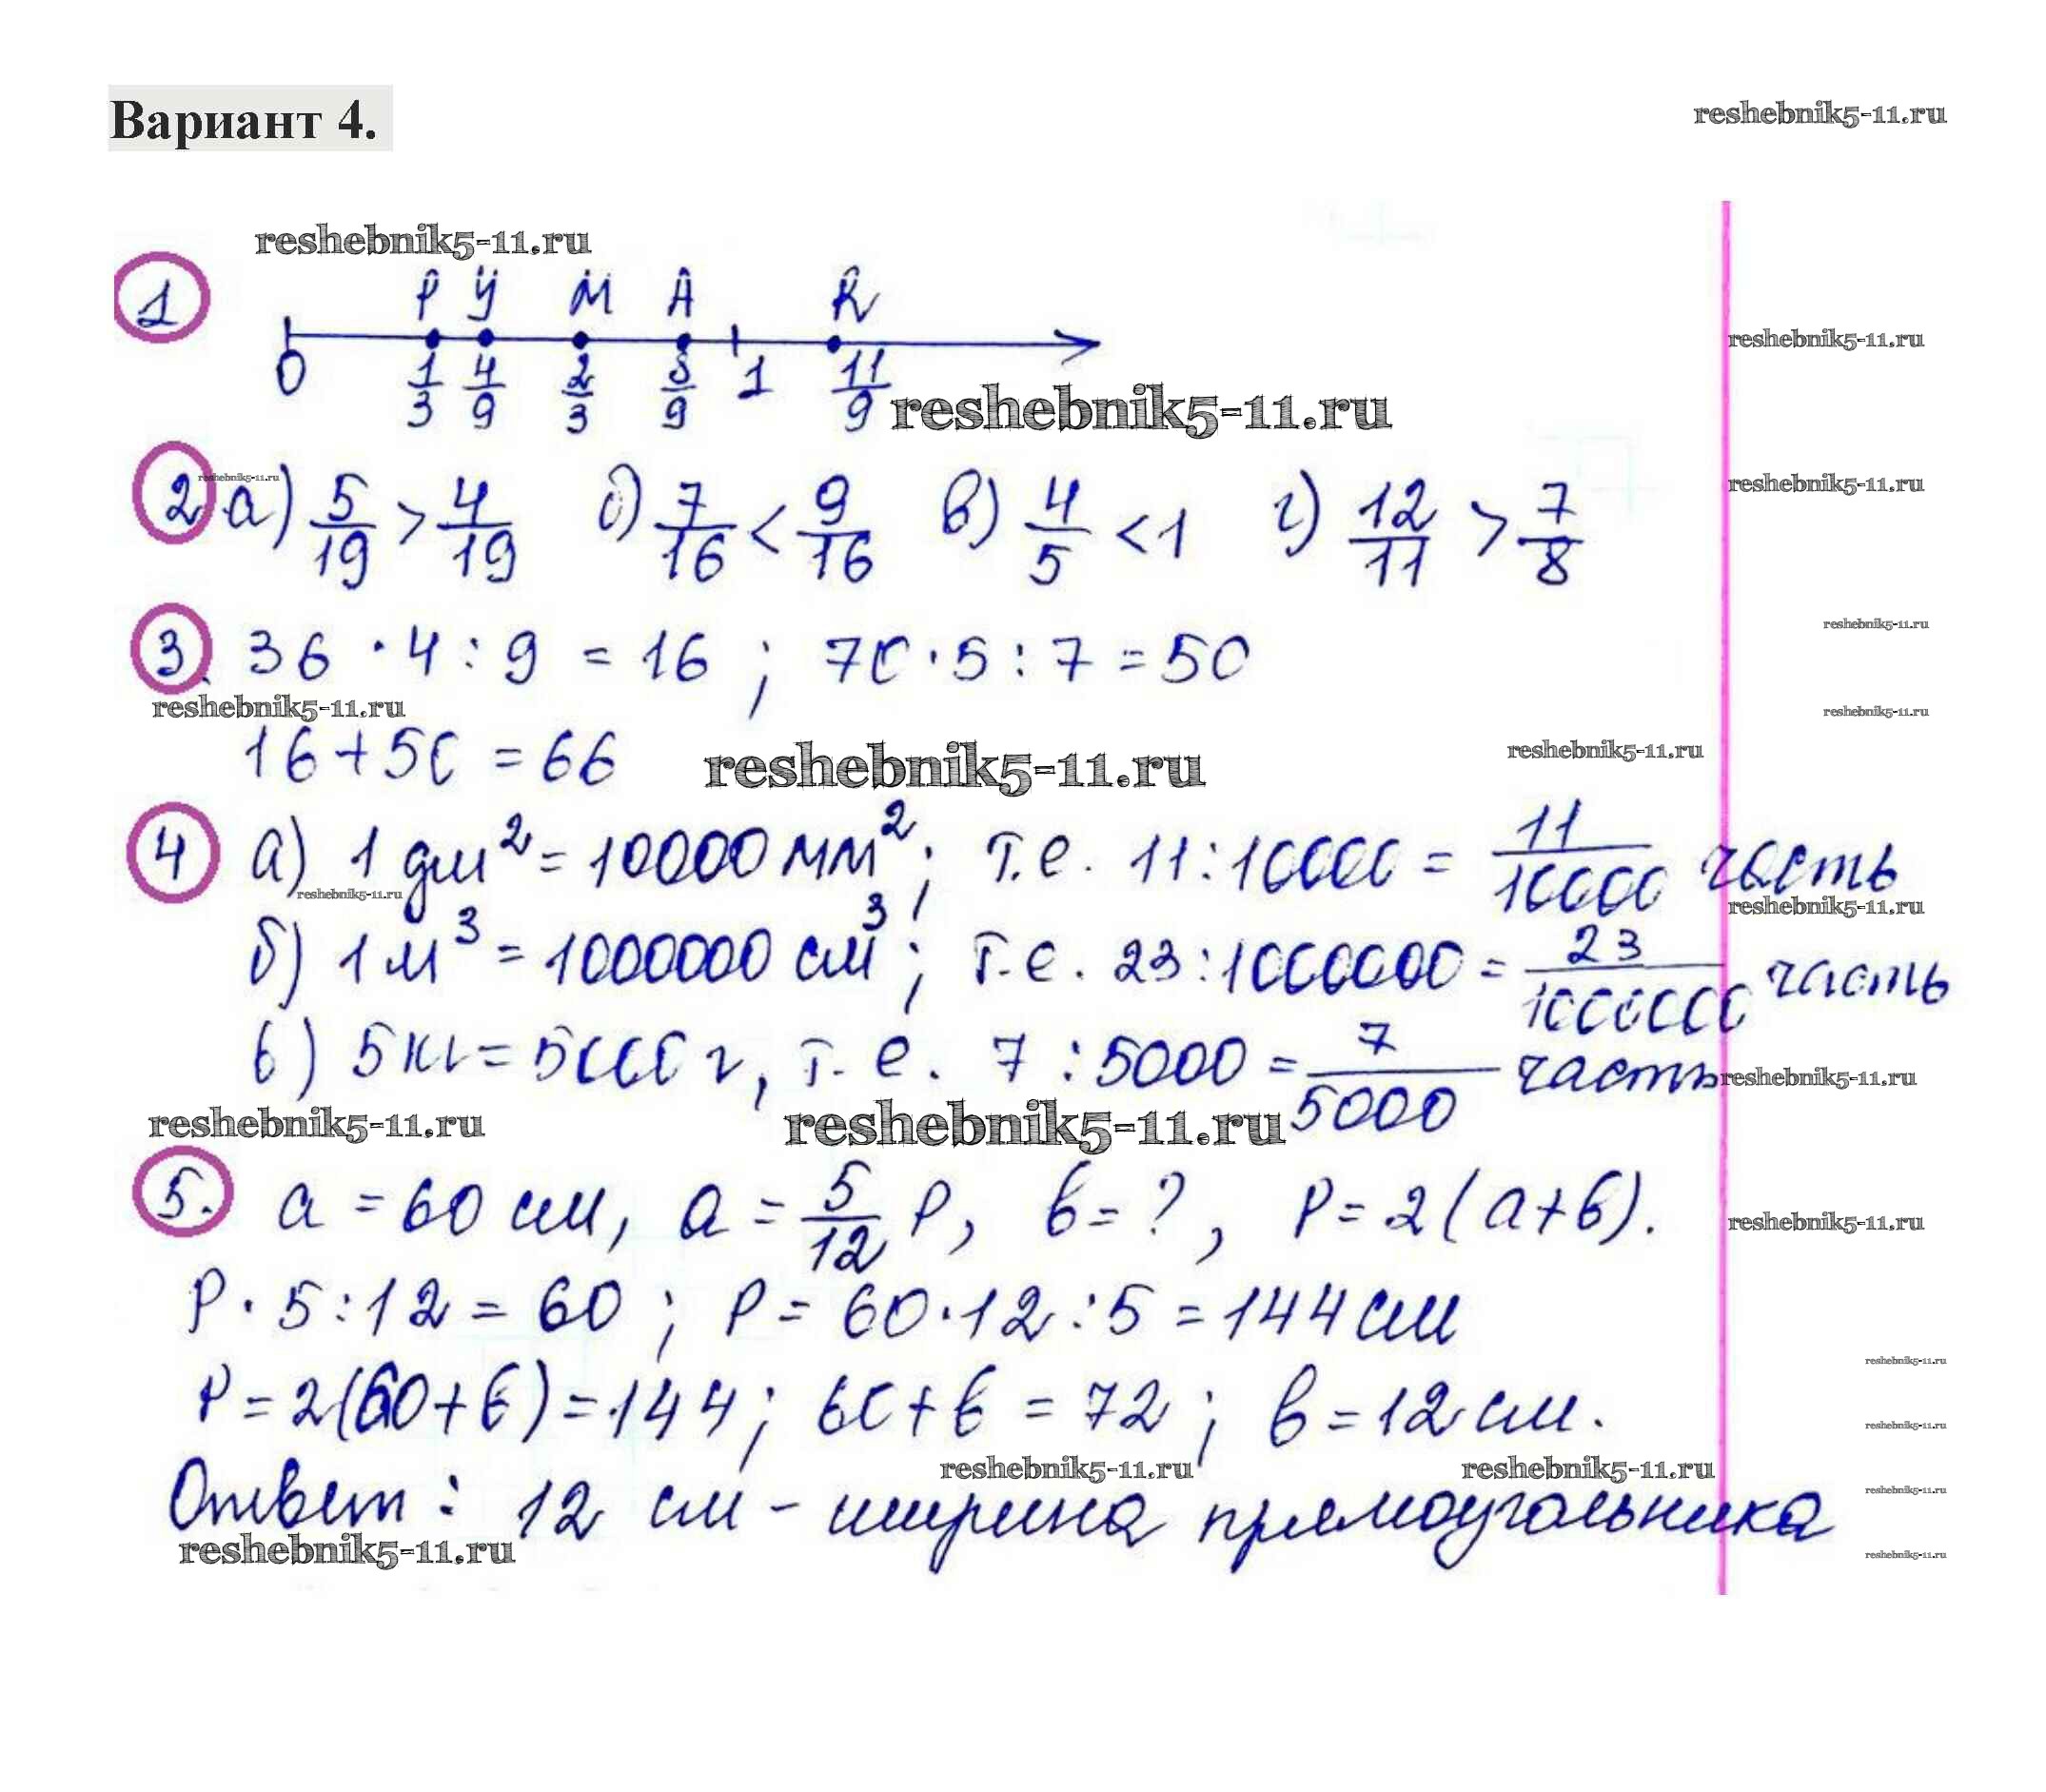 Вариант 4.
reshebnik5-11.ru
reshebnik5-11.ru
1 P У M A R
0 1/3 4/9 2/3 8/9 1 11/9
reshebnik5-11.ru
reshebnik5-11.ru
2 а) 5/19 > 4/19 б) 7/16 < 9/16 в) 4/5 < 1 г) 12/11 > 7/8
reshebnik5-11.ru
reshebnik5-11.ru
3. 36 · 4 : 9 = 16 ; 70 · 5 : 7 = 50
reshebnik5-11.ru
reshebnik5-11.ru
reshebnik5-11.ru
16 + 50 = 66
reshebnik5-11.ru
reshebnik5-11.ru
4 а) 1 дм² = 10000 мм²; т.е. 11 : 10000 = 11/10000 часть
reshebnik5-11.ru
reshebnik5-11.ru
б) 1 м³ = 1000000 см³; т.е. 23 : 1000000 = 23/1000000 часть
в) 5 кг = 5000 г, т.е. 7 : 5000 = 7/5000 часть
reshebnik5-11.ru
reshebnik5-11.ru
reshebnik5-11.ru
5. a = 60 см, a = 5/12 P, b = ?, P = 2(a+b).
reshebnik5-11.ru
P · 5 : 12 = 60 ; P = 60 · 12 : 5 = 144 см
reshebnik5-11.ru
P = 2(60+b) = 144; 60 + b = 72; b = 12 см.
reshebnik5-11.ru
reshebnik5-11.ru
reshebnik5-11.ru
reshebnik5-11.ru
Ответ: 12 см - ширина прямоугольника
reshebnik5-11.ru
reshebnik5-11.ru